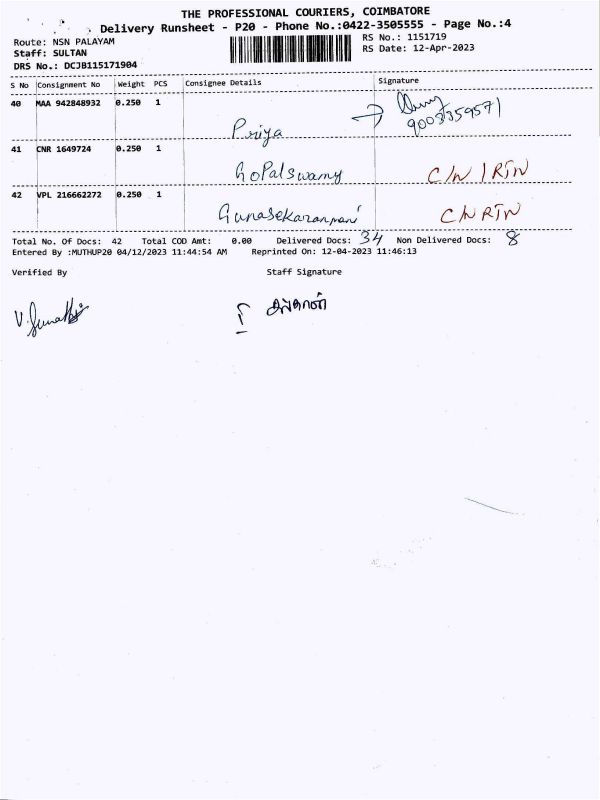 THE PROFESSIONAL COURIERS, COIMBATORE
Delivery Runsheet - P20 - Phone No.:0422-3505555 - Page No.:4
Route: NSN PALAYAM
RS No.: 1151719
Staff: SULTAN
RS Date: 12-Apr-2023
DRS No.: DCJB115171904
S No Consignment No Weight PCS Consignee Details Signature
40 MAA 942848932 0.250 1
Priya → 9003359571
41 CNR 1649724 0.250 1
GoPalswamy C/N / RTN
42 VPL 216662272 0.250 1
Gunasekaranmani C/N RTN
Total No. Of Docs: 42 Total COD Amt: 0.00 Delivered Docs: 34 Non Delivered Docs: 8
Entered By :MUTHUP20 04/12/2023 11:44:54 AM Reprinted On: 12-04-2023 11:46:13
Verified By Staff Signature
சுல்தான்